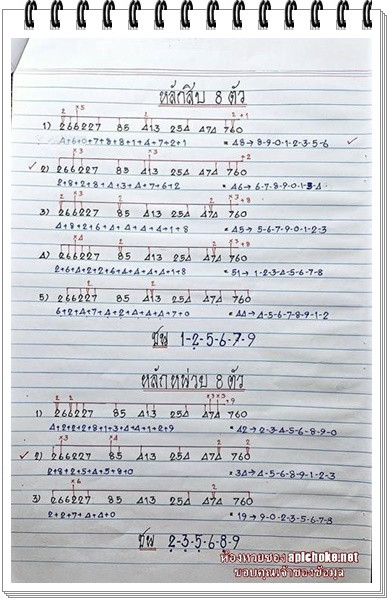 หลักสิบ 8 ตัว
2 ×5 2 2 +1
1) 266227 85 413 254 474 760
4+6+0+7+8+8+1+4+7+2+1 = 48→ 8-9-0-1-2-3-5-6
×3 ×3 +2
2) 266227 85 413 254 474 760
2+8+2+8+4+3+4+7+6+2 = 46→ 6-7-8-9-0-1-3-4
×3 2 2 ×3+8
3) 266227 85 413 254 474 760
4+8+2+6+4+4+4+4+1+8 = 45→ 5-6-7-8-9-0-1-2-3
×4 2 2 ×3+8
4) 266227 85 413 254 474 760
2+6+4+2+2+6+4+4+4+4+1+8 = 51→ 1-2-3-4-5-6-7-8
2 2
5) 266227 85 413 254 474 760
6+2+4+7+4+2+4+4+4+7+0 = 44→ 4-5-6-7-8-9-1-2
ชน 1-2-5-6-7-9
หลักหน่วย 8 ตัว
2 2 ×3×3+9
1) 266227 85 413 254 474 760
4+2+2+2+8+1+3+4+4+1+2+9 = 42→ 2-3-4-5-6-8-9-0
×3 ×4 2 2
2) 266227 85 413 254 474 760
2+8+2+5+4+5+8+0 = 34→ 4-5-6-8-9-1-2-3
×6
3) 266227 85 413 254 474 760
2+2+7+4+4+0 = 19→ 9-0-2-3-5-6-7-8
ชน 2-3-5-6-8-9
ห้องหวยซองapichoke.net
ขอบคุณเจ้าของข้อมูล